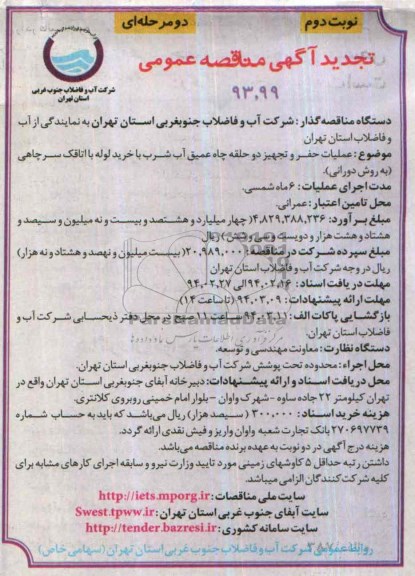 نوبت دوم
دو مرحله‌ای
تجدید آگهی مناقصه عمومی
۹۳،۹۹
شرکت آب و فاضلاب جنوب غربی
استان تهران
دستگاه مناقصه‌گذار: شرکت آب و فاضلاب جنوبغربی استان تهران به نمایندگی از آب
و فاضلاب استان تهران
موضوع: عملیات حفر و تجهیز دو حلقه چاه عمیق آب شرب با خرید لوله با اتاقک سرچاهی
(به روش دورانی).
مدت اجرای عملیات: ۶ ماه شمسی.
محل تامین اعتبار: عمرانی.
مبلغ برآورد: ۴,۸۲۹,۳۸۸,۲۳۶( چهار میلیارد و هشتصد و بیست و نه میلیون و سیصد و
هشتاد و هشت هزار و دویست و سی و شش) ریال
مبلغ سپرده شرکت در مناقصه: ۲۰,۹۸۹,۰۰۰( بیست میلیون و نهصد و هشتاد و نه هزار)
ریال در وجه شرکت آب و فاضلاب استان تهران
مهلت دریافت اسناد: ۹۴،۰۲،۱۶ الی ۹۴،۰۲،۲۷
مهلت ارائه پیشنهادات: ۹۴،۰۳،۰۹ (تا ساعت ۱۴)
بازگشایی پاکات الف: ۹۴،۰۳،۱۱ ساعت ۱۱ صبح در محل دفتر ذیحسابی شرکت آب و
فاضلاب استان تهران.
دستگاه نظارت: معاونت مهندسی و توسعه.
محل اجراء: محدوده تحت پوشش شرکت آب و فاضلاب جنوبغربی استان تهران.
محل دریافت اسناد و ارائه پیشنهادات: دبیرخانه آبفای جنوبغربی استان تهران واقع در
تهران کیلومتر ۲۲ جاده ساوه - شهرک واوان - بلوار امام خمینی روبروی کلانتری.
هزینه خرید اسناد: ۳۰۰,۰۰۰ ( سیصد هزار) ریال می‌باشد که باید به حساب شماره
۲۷۰۶۹۷۷۳۹ بانک تجارت شعبه واوان واریز و فیش نقدی ارائه گردد.
هزینه درج آگهی در دو نوبت به عهده برنده مناقصه می‌باشد.
داشتن رتبه حداقل ۵ کاوشهای زمینی مورد تایید وزارت نیرو و سابقه اجرای کارهای مشابه برای
کلیه شرکت‌کنندگان الزامی میباشد.
سایت ملی مناقصات: http://iets.mporg.ir
سایت آبفای جنوب غربی استان تهران: Swest.tpww.ir
سایت سامانه کشوری: http://tender.bazresi.ir
روابط عمومی شرکت آب و فاضلاب جنوب غربی استان تهران (سهامی خاص)